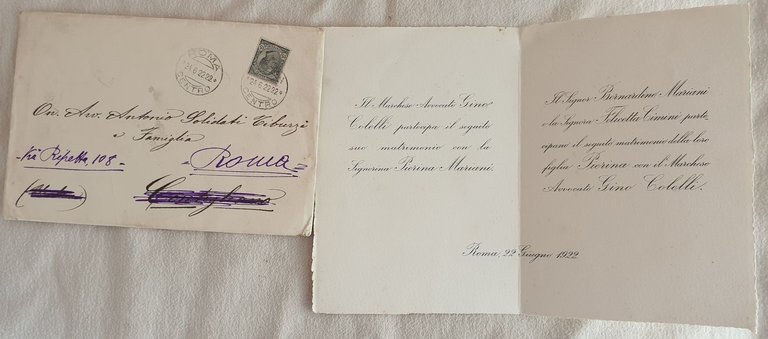 ROMA
24·6·22 22
CENTRO
24·6·22 22
CENTRO
On. Av. Antonio Solidati Tiburzi
e Famiglia
Via Ripetta, 108
Roma
Il Marchese Avvocato Gino
Cololli partecipa il seguito
suo matrimonio con la
Signorina Pierina Mariani.
Il Signor Bernardino Mariani
e la Signora Felicetta Cimino parte,
cipano il seguito matrimonio della loro
figlia Pierina con il Marchese
Avvocato Gino Cololli.
Roma, 22 Giugno 1922